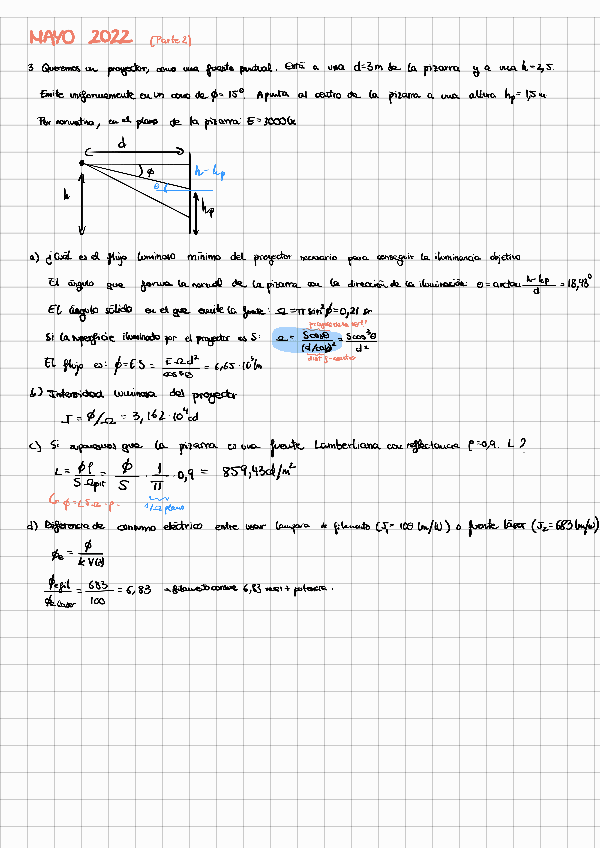 MAYO 2022 (Parte 2)
3 Queremos un proyector, como una fuente puntual. Está a una d=3m de la pizarra y a una h=2,5.
Emite uniformemente en un cono de ϕ=15º. Apunta al centro de la pizarra a una altura hp=1,5m
Por normativa, en el plano de la pizarra: E=3000lx
d
h
ϕ
θ
h-hp
hp
a) ¿Cuál es el flujo luminoso mínimo del proyector necesario para conseguir la iluminancia objetivo
El ángulo que forma la normal de la pizarra con la dirección de la iluminación: θ=arctan (h-hp)/d = 18,43º
El ángulo sólido en el que emite la fuente: Ω=π sin²ϕ=0,21 sr
Si la superficie iluminada por el proyector es S: Ω = S cosθ/(d/cosθ)² = S cos³θ/d²
El flujo es: ϕ=E S = E·Ω·d²/cos³θ = 6,65·10³lm
b) Intensidad luminosa del proyector
I = ϕ/Ω = 3,162·10⁴cd
c) Si suponemos que la pizarra es una fuente Lambertiana con reflectancia ρ=0,9. L?
L = ϕρ/(S Ωpit) = ϕ/S · 1/π · 0,9 = 859,43cd/m²
1/Ω plano
d) Diferencia de consumo eléctrico entre usar lámpara de filamento (J₁=100 lm/W) o fuente láser (J₂=683 lm/W)
ϕe = ϕ/(k V(λ))
ϕe fil/ϕe laser = 683/100 = 6,83 → filamento consume 6,83 veces + potencia.